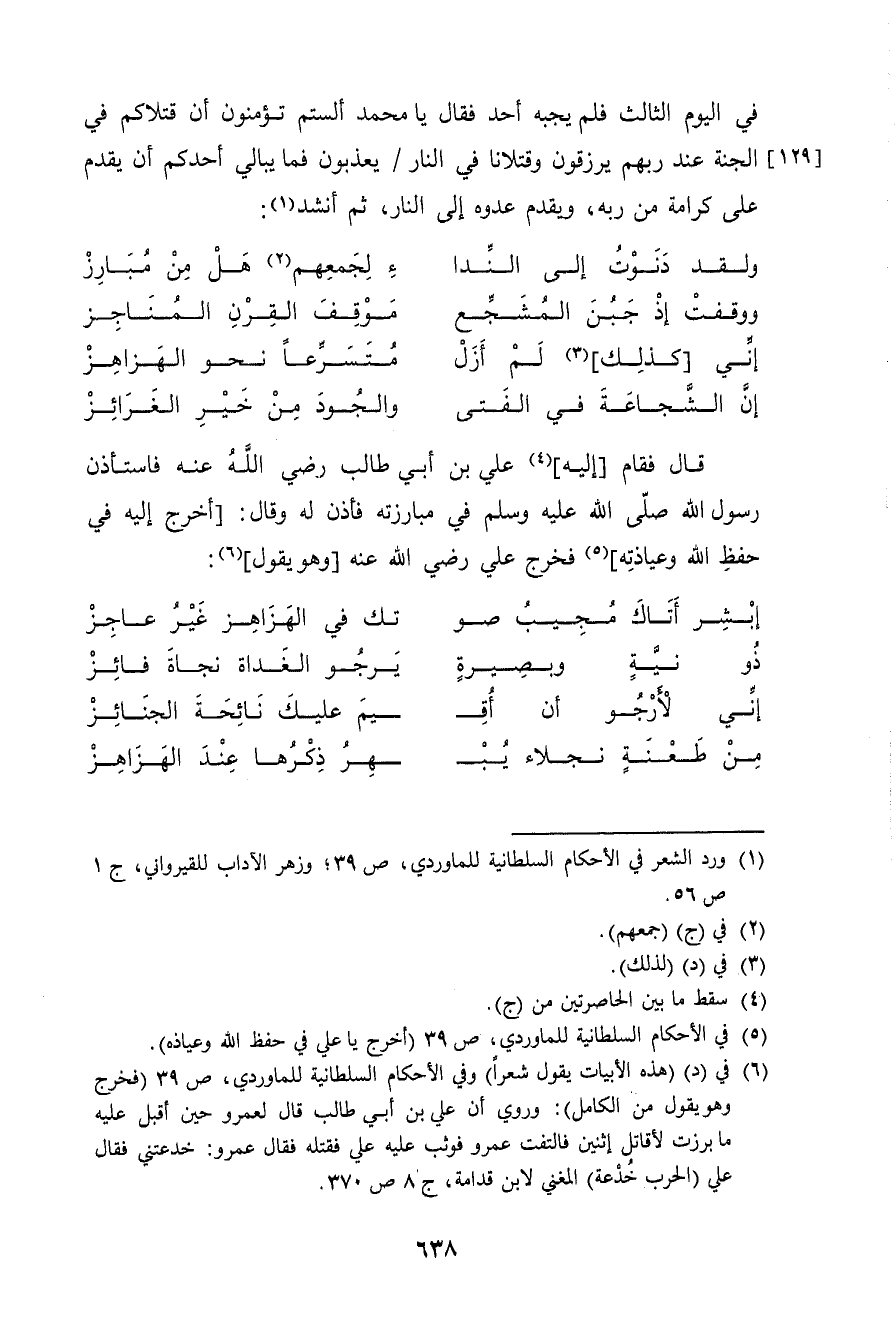 في اليوم الثالث فلم يجبه أحد فقال يا محمد ألستم تـؤمنون أن قتلاكم في
[١٢٩] الجنة عند ربهم يرزقون وقتلانا في النار / يعذبون فما يبالي أحدكم أن يقدم
على كرامة من ربه، ويقدم عدوه إلى النار، ثم أنشد(١):
ولـقـد دَنَـوْتُ إلـى الـنِّـدا ءِ لِجَمعِهـم(٢) هَـلْ مِنْ مُبَـارِزْ
ووقـفـتْ إذْ جَـبُـنَ الـمُـشَـجِّـع مَـوْقِـفَ الـقِـرْنِ الـمُـنَـاجِـز
إنِّـي [كـذلِـك](٣) لَـمْ أَزَلْ مُتَـسَـرِّعـاً نـحـو الـهَـزاهِـزْ
إنَّ الـشَّـجـاعَـةَ فـي الـفـتى والـجُـودَ مِـنْ خَـيْـرِ الـغَـرَائِـزْ
قـال فقام [إليه](٤) علي بن أبـي طالب رضي اللَّهُ عنـه فاستـأذن
رسول الله صلّى الله عليه وسلم في مبارزته فأذن له وقال: [أخرج إليه في
حفظِ الله وعياذتِه](٥) فخرج علي رضي الله عنه [وهو يقول](٦):
إبْـشِـر أَتَـاكَ مُـجِـيـبُ صـو تـك في الهَـزَاهِـز غَيْـرُ عـاجِـزْ
ذُو نـيَّـةٍ وبـصِـيـرةٍ يَـرجُـو الـغَـداة نجـاةَ فـائِـزْ
إنِّـي لأَرْجُـو أن أُقِـ ـيمَ عليـكَ نَـائِحَـةَ الجنَـائِـزْ
مِـنْ طَـعْـنَـةٍ نـجـلاء يُـبْـ ـهِـرُ ذِكْـرُهـا عِنْـدَ الهَـزَاهِـزْ
(١) ورد الشعر في الأحكام السلطانية للماوردي، ص ٣٩؛ وزهر الآداب للقيرواني، ج ١
ص ٥٦.
(٢) في (ج) (جمعهم).
(٣) في (د) (لذلك).
(٤) سقط ما بين الحاصرتين من (ج).
(٥) في الأحكام السلطانية للماوردي، ص ٣٩ (أخرج يا علي في حفظ الله وعياذه).
(٦) في (د) (هذه الأبيات يقول شعراً) وفي الأحكام السلطانية للماوردي، ص ٣٩ (فخرج
وهو يقول من الكامل): وروي أن علي بن أبـي طالب قال لعمرو حين أقبل عليه
ما برزت لأقاتل إثنين فالتفت عمرو فوثب عليه علي فقتله فقال عمرو: خدعتني فقال
علي (الحرب خُدْعة) المغني لابن قدامة، ج ٨ ص ٣٧٠.
٦٣٨